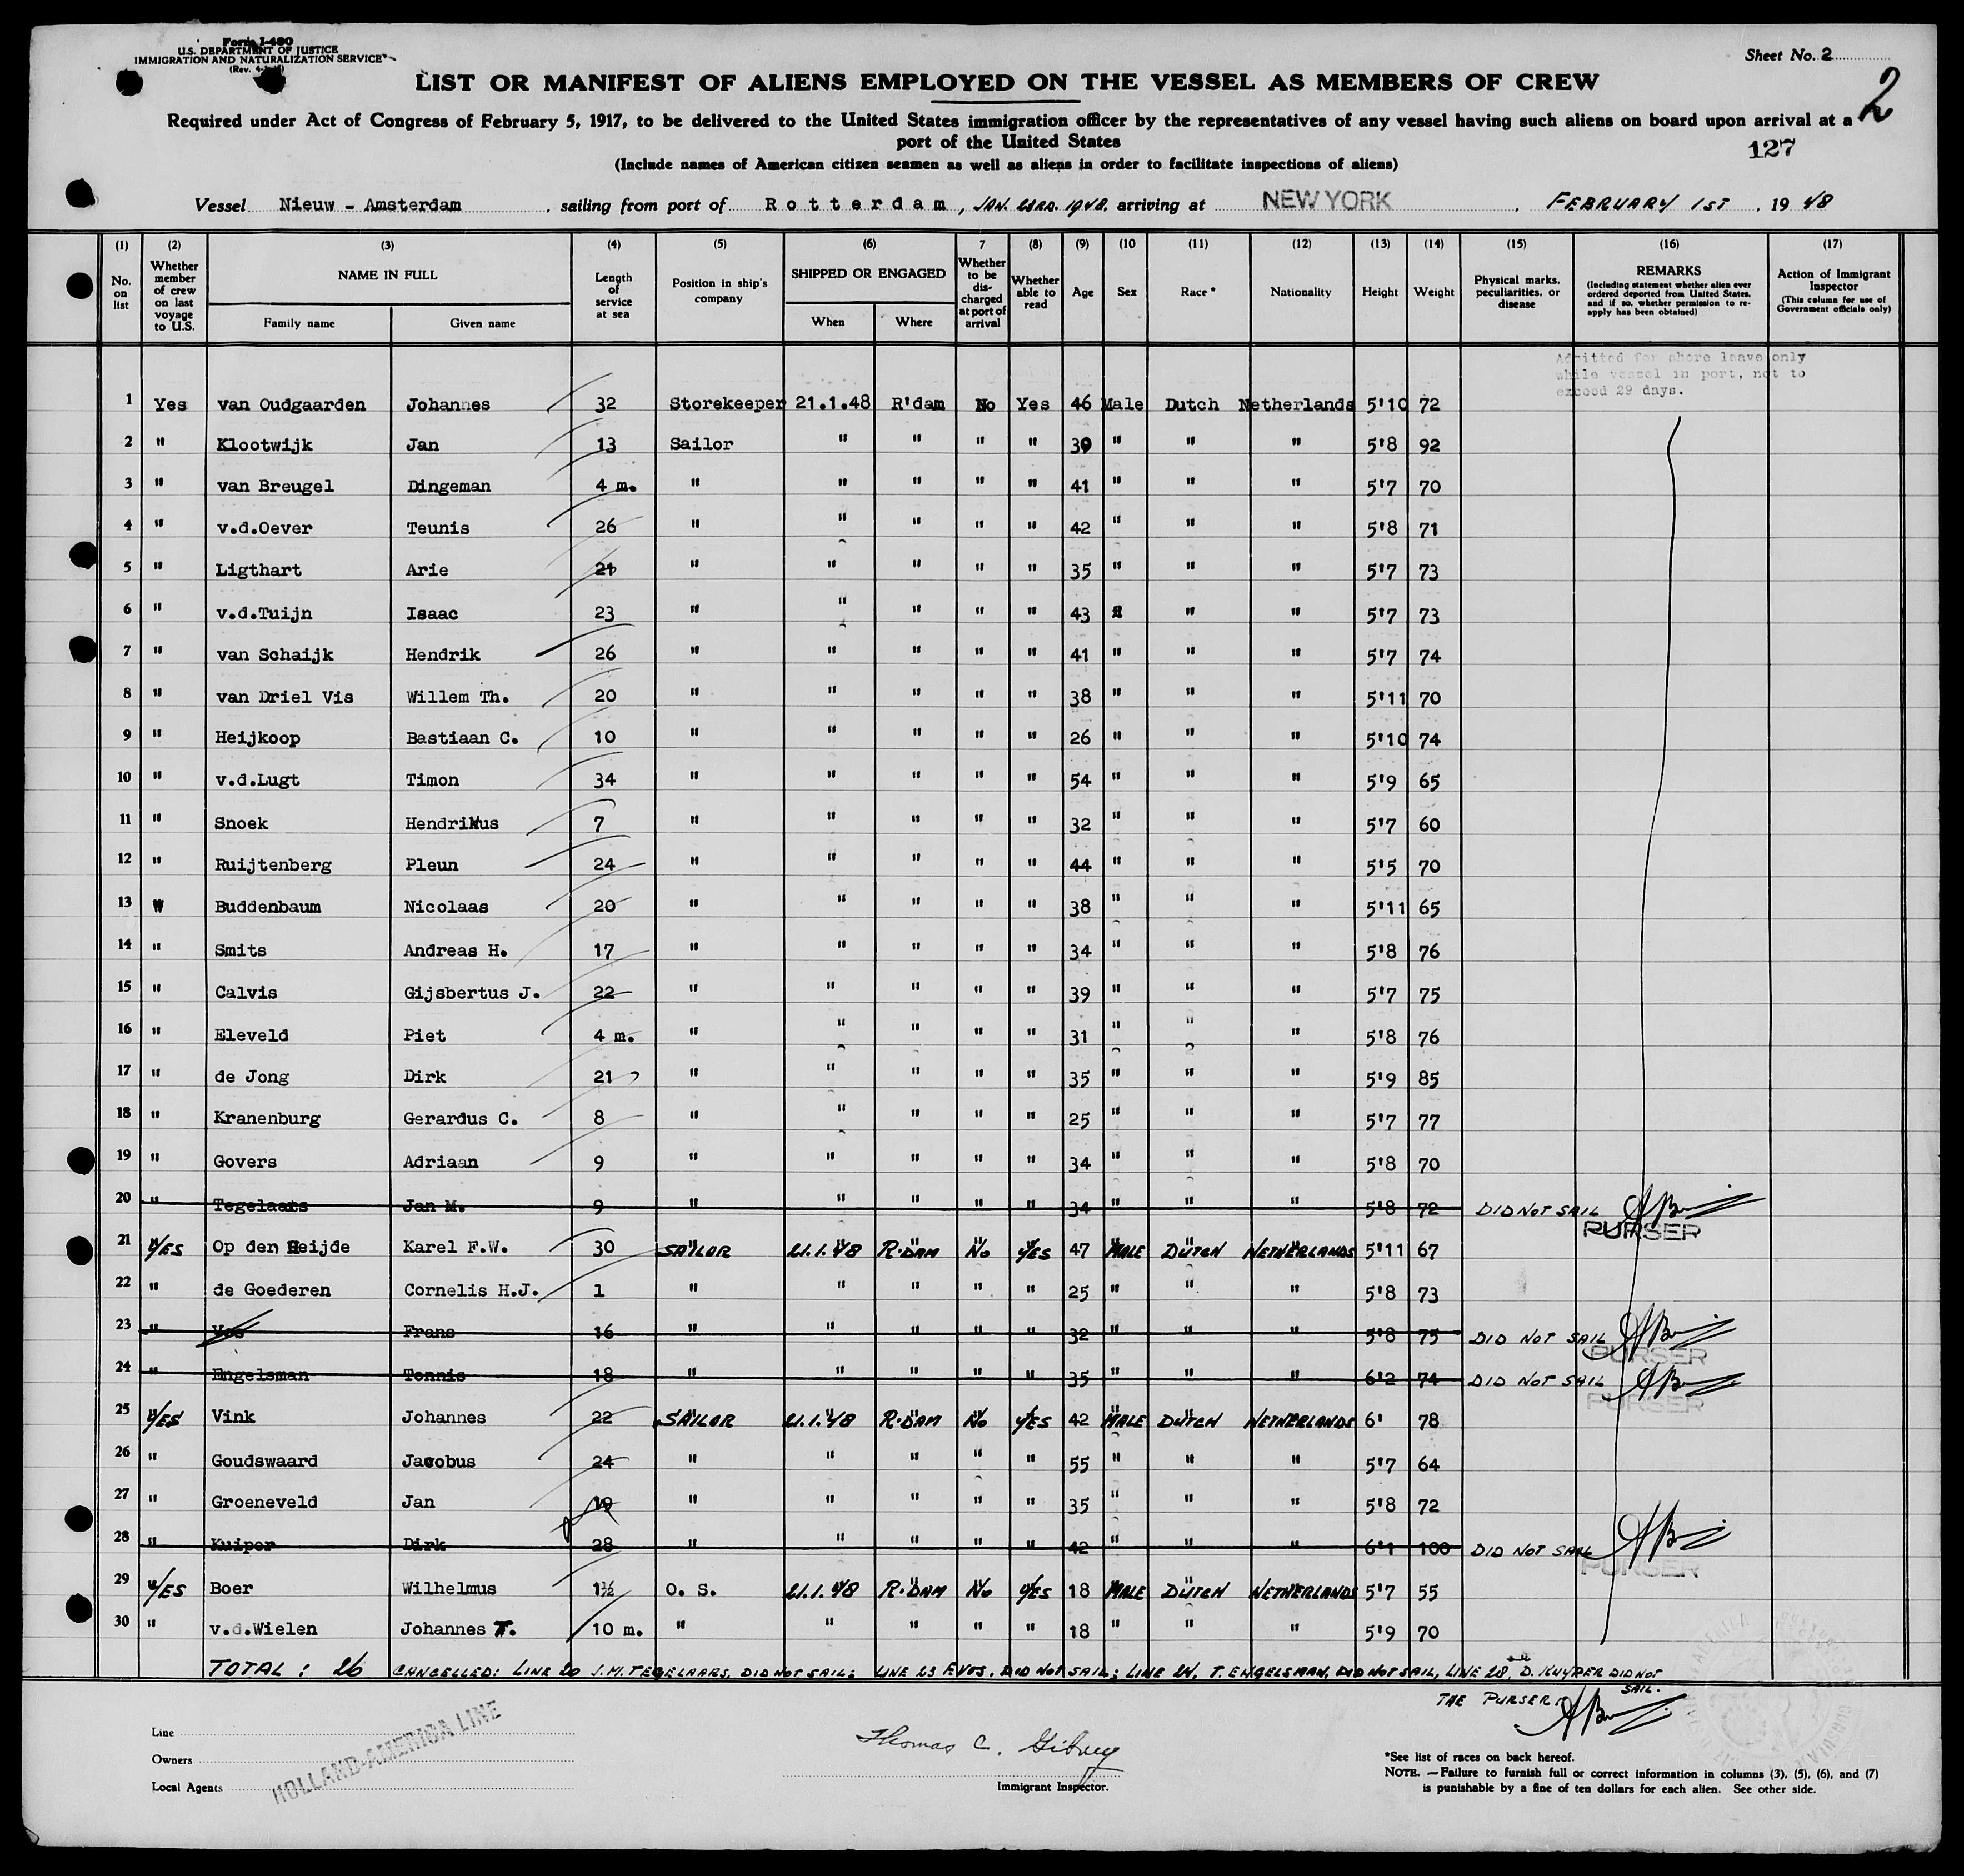 Form I-480
U.S. DEPARTMENT OF JUSTICE
IMMIGRATION AND NATURALIZATION SERVICE
Sheet No. 2
LIST OR MANIFEST OF ALIENS EMPLOYED ON THE VESSEL AS MEMBERS OF CREW
2
Required under Act of Congress of February 5, 1917, to be delivered to the United States immigration officer by the representatives of any vessel having such aliens on board upon arrival at a
port of the United States
127
(Include names of American citizen seamen as well as aliens in order to facilitate inspections of aliens)
Vessel Nieuw - Amsterdam, sailing from port of Rotterdam, JAN. 1948, arriving at NEW YORK, FEBRUARY 1ST, 1948
(1) (2) (3) (4) (5) (6) 7 (8) (9) (10 (11) (12) (13) (14) (15) (16) (17)
No. on list
Whether member of crew on last voyage to U.S.
NAME IN FULL
Family name Given name
Length of service at sea
Position in ship's company
SHIPPED OR ENGAGED
When Where
Whether to be discharged at port of arrival
Whether able to read
Age
Sex
Race *
Nationality
Height
Weight
Physical marks, peculiarities, or disease
REMARKS
(Including statement whether alien ever ordered deported from United States, and if so, whether permission to reapply has been obtained)
Action of Immigrant Inspector
(This column for use of Government officials only)
Admitted for shore leave only
while vessel in port, not to
exceed 29 days.
1 Yes van Oudgaarden Johannes 32 Storekeeper 21.1.48 R'dam No Yes 46 Male Dutch Netherlands 5'10 72
2 " Klootwijk Jan 13 Sailor " " " " 39 " " " 5'8 92
3 " van Breugel Dingeman 4 m. " " " " " 41 " " " 5'7 70
4 " v.d.Oever Teunis 26 " " " " " 42 " " " 5'8 71
5 " Ligthart Arie 21 " " " " " 35 " " " 5'7 73
6 " v.d.Tuijn Isaac 23 " " " " " 43 " " " 5'7 73
7 " van Schaijk Hendrik 26 " " " " " 41 " " " 5'7 74
8 " van Driel Vis Willem Th. 20 " " " " " 38 " " " 5'11 70
9 " Heijkoop Bastiaan C. 10 " " " " " 26 " " " 5'10 74
10 " v.d.Lugt Timon 34 " " " " " 54 " " " 5'9 65
11 " Snoek Hendrikus 7 " " " " " 32 " " " 5'7 60
12 " Ruijtenberg Pleun 24 " " " " " 44 " " " 5'5 70
13 " Buddenbaum Nicolaas 20 " " " " " 38 " " " 5'11 65
14 " Smits Andreas H. 17 " " " " " 34 " " " 5'8 76
15 " Calvis Gijsbertus J. 22 " " " " " 39 " " " 5'7 75
16 " Eleveld Piet 4 m. " " " " " 31 " " " 5'8 76
17 " de Jong Dirk 21 " " " " " 35 " " " 5'9 85
18 " Kranenburg Gerardus C. 8 " " " " " 25 " " " 5'7 77
19 " Govers Adriaan 9 " " " " " 34 " " " 5'8 70
20 " Tegelaars Jan M. 9 " " " " " 34 " " " 5'8 72 DID NOT SAIL PURSER
21 YES Op den Heijde Karel F.W. 30 SAILOR 21.1.48 R'DAM No YES 47 MALE DUTCH NETHERLANDS 5'11 67
22 " de Goederen Cornelis H.J. 1 " " " " " 25 " " " 5'8 73
23 " Vos Frans 16 " " " " " 32 " " " 5'8 75 DID NOT SAIL PURSER
24 " Engelsman Tonnis 18 " " " " " 35 " " " 6'2 74 DID NOT SAIL PURSER
25 YES Vink Johannes 22 SAILOR 21.1.48 R'DAM No YES 42 MALE DUTCH NETHERLANDS 6' 78
26 " Goudswaard Jacobus 24 " " " " " 55 " " " 5'7 64
27 " Groeneveld Jan 19 " " " " " 35 " " " 5'8 72
28 " Kuiper Dirk 28 " " " " " 42 " " " 6'1 100 DID NOT SAIL PURSER
29 YES Boer Wilhelmus 1½ O. S. 21.1.48 R'DAM No YES 18 MALE DUTCH NETHERLANDS 5'7 55
30 " v.d.Wielen Johannes T. 10 m. " " " " " 18 " " " 5'9 70
TOTAL : 26 CANCELLED: LINE 20 J.M. TEGELAARS, DID NOT SAIL; LINE 23 F. VOS, DID NOT SAIL; LINE 24, T. ENGELSMAN, DID NOT SAIL, LINE 28, D. KUYPER DID NOT
SAIL.
THE PURSER:
Line
Owners
Local Agents
HOLLAND-AMERICA LINE
Thomas C. Gibney
Immigrant Inspector.
*See list of races on back hereof.
NOTE. —Failure to furnish full or correct information in columns (3), (5), (6), and (7)
is punishable by a fine of ten dollars for each alien. See other side.